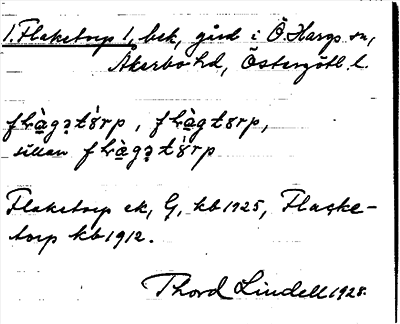 1. Flaketorp 1, bek, gård i Ö. Hargs sn,
Åkerbo hd, Östergötl. l.
flàgətórp, flàgtorp,
sällan flàgətórp
Flaketorp ek, G, kb 1925, Flacke-
torp kb 1912.
Thord Lindell 1928.